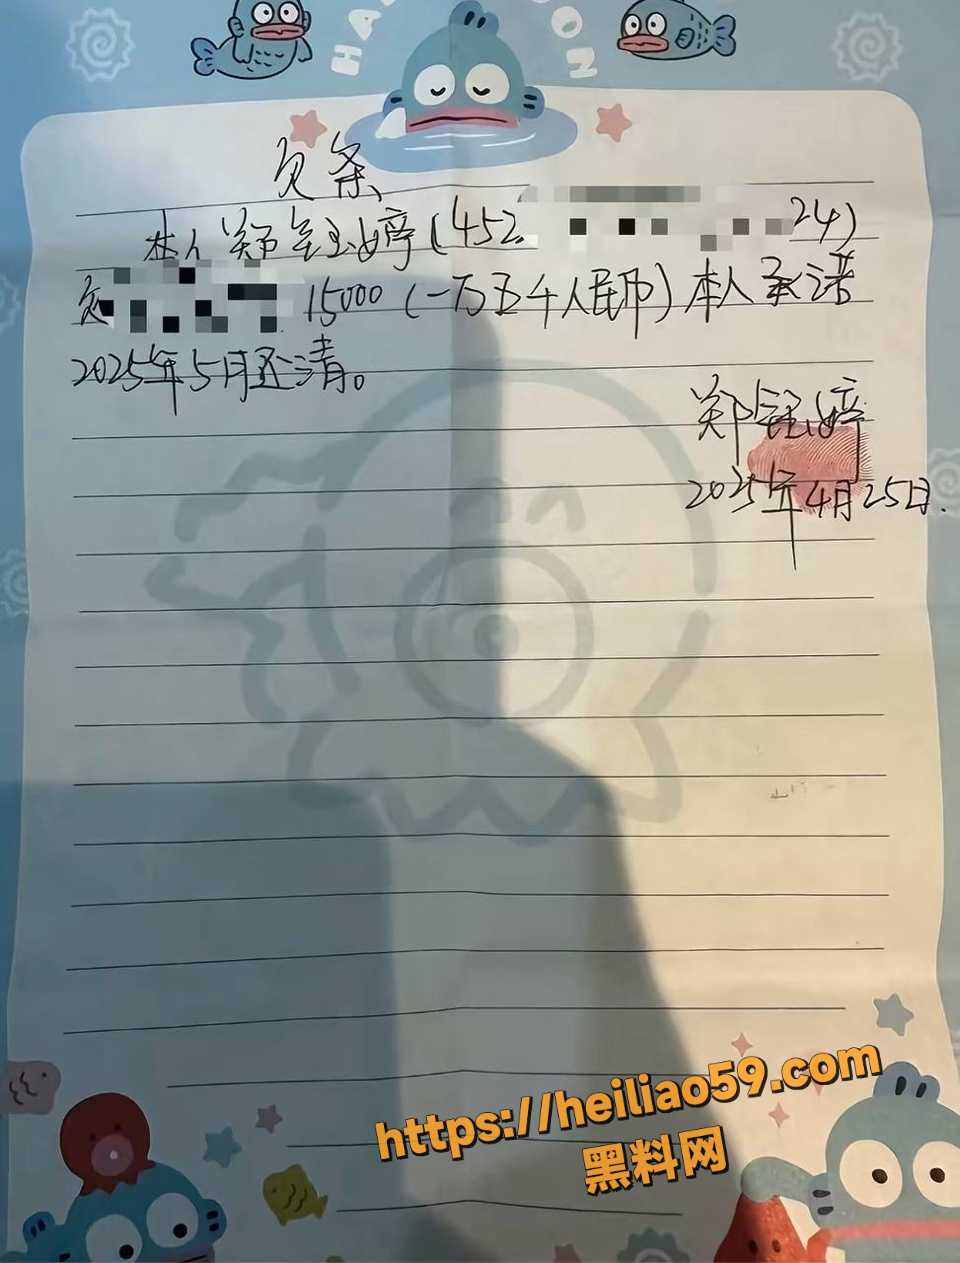 HA ON
欠条
本人郑钰婷(452 24)
欠 15000(一万五千人民币)本人承诺
2025年5月还清。
郑钰婷
2025年4月25日.
https://heiliao59.com
黑料网